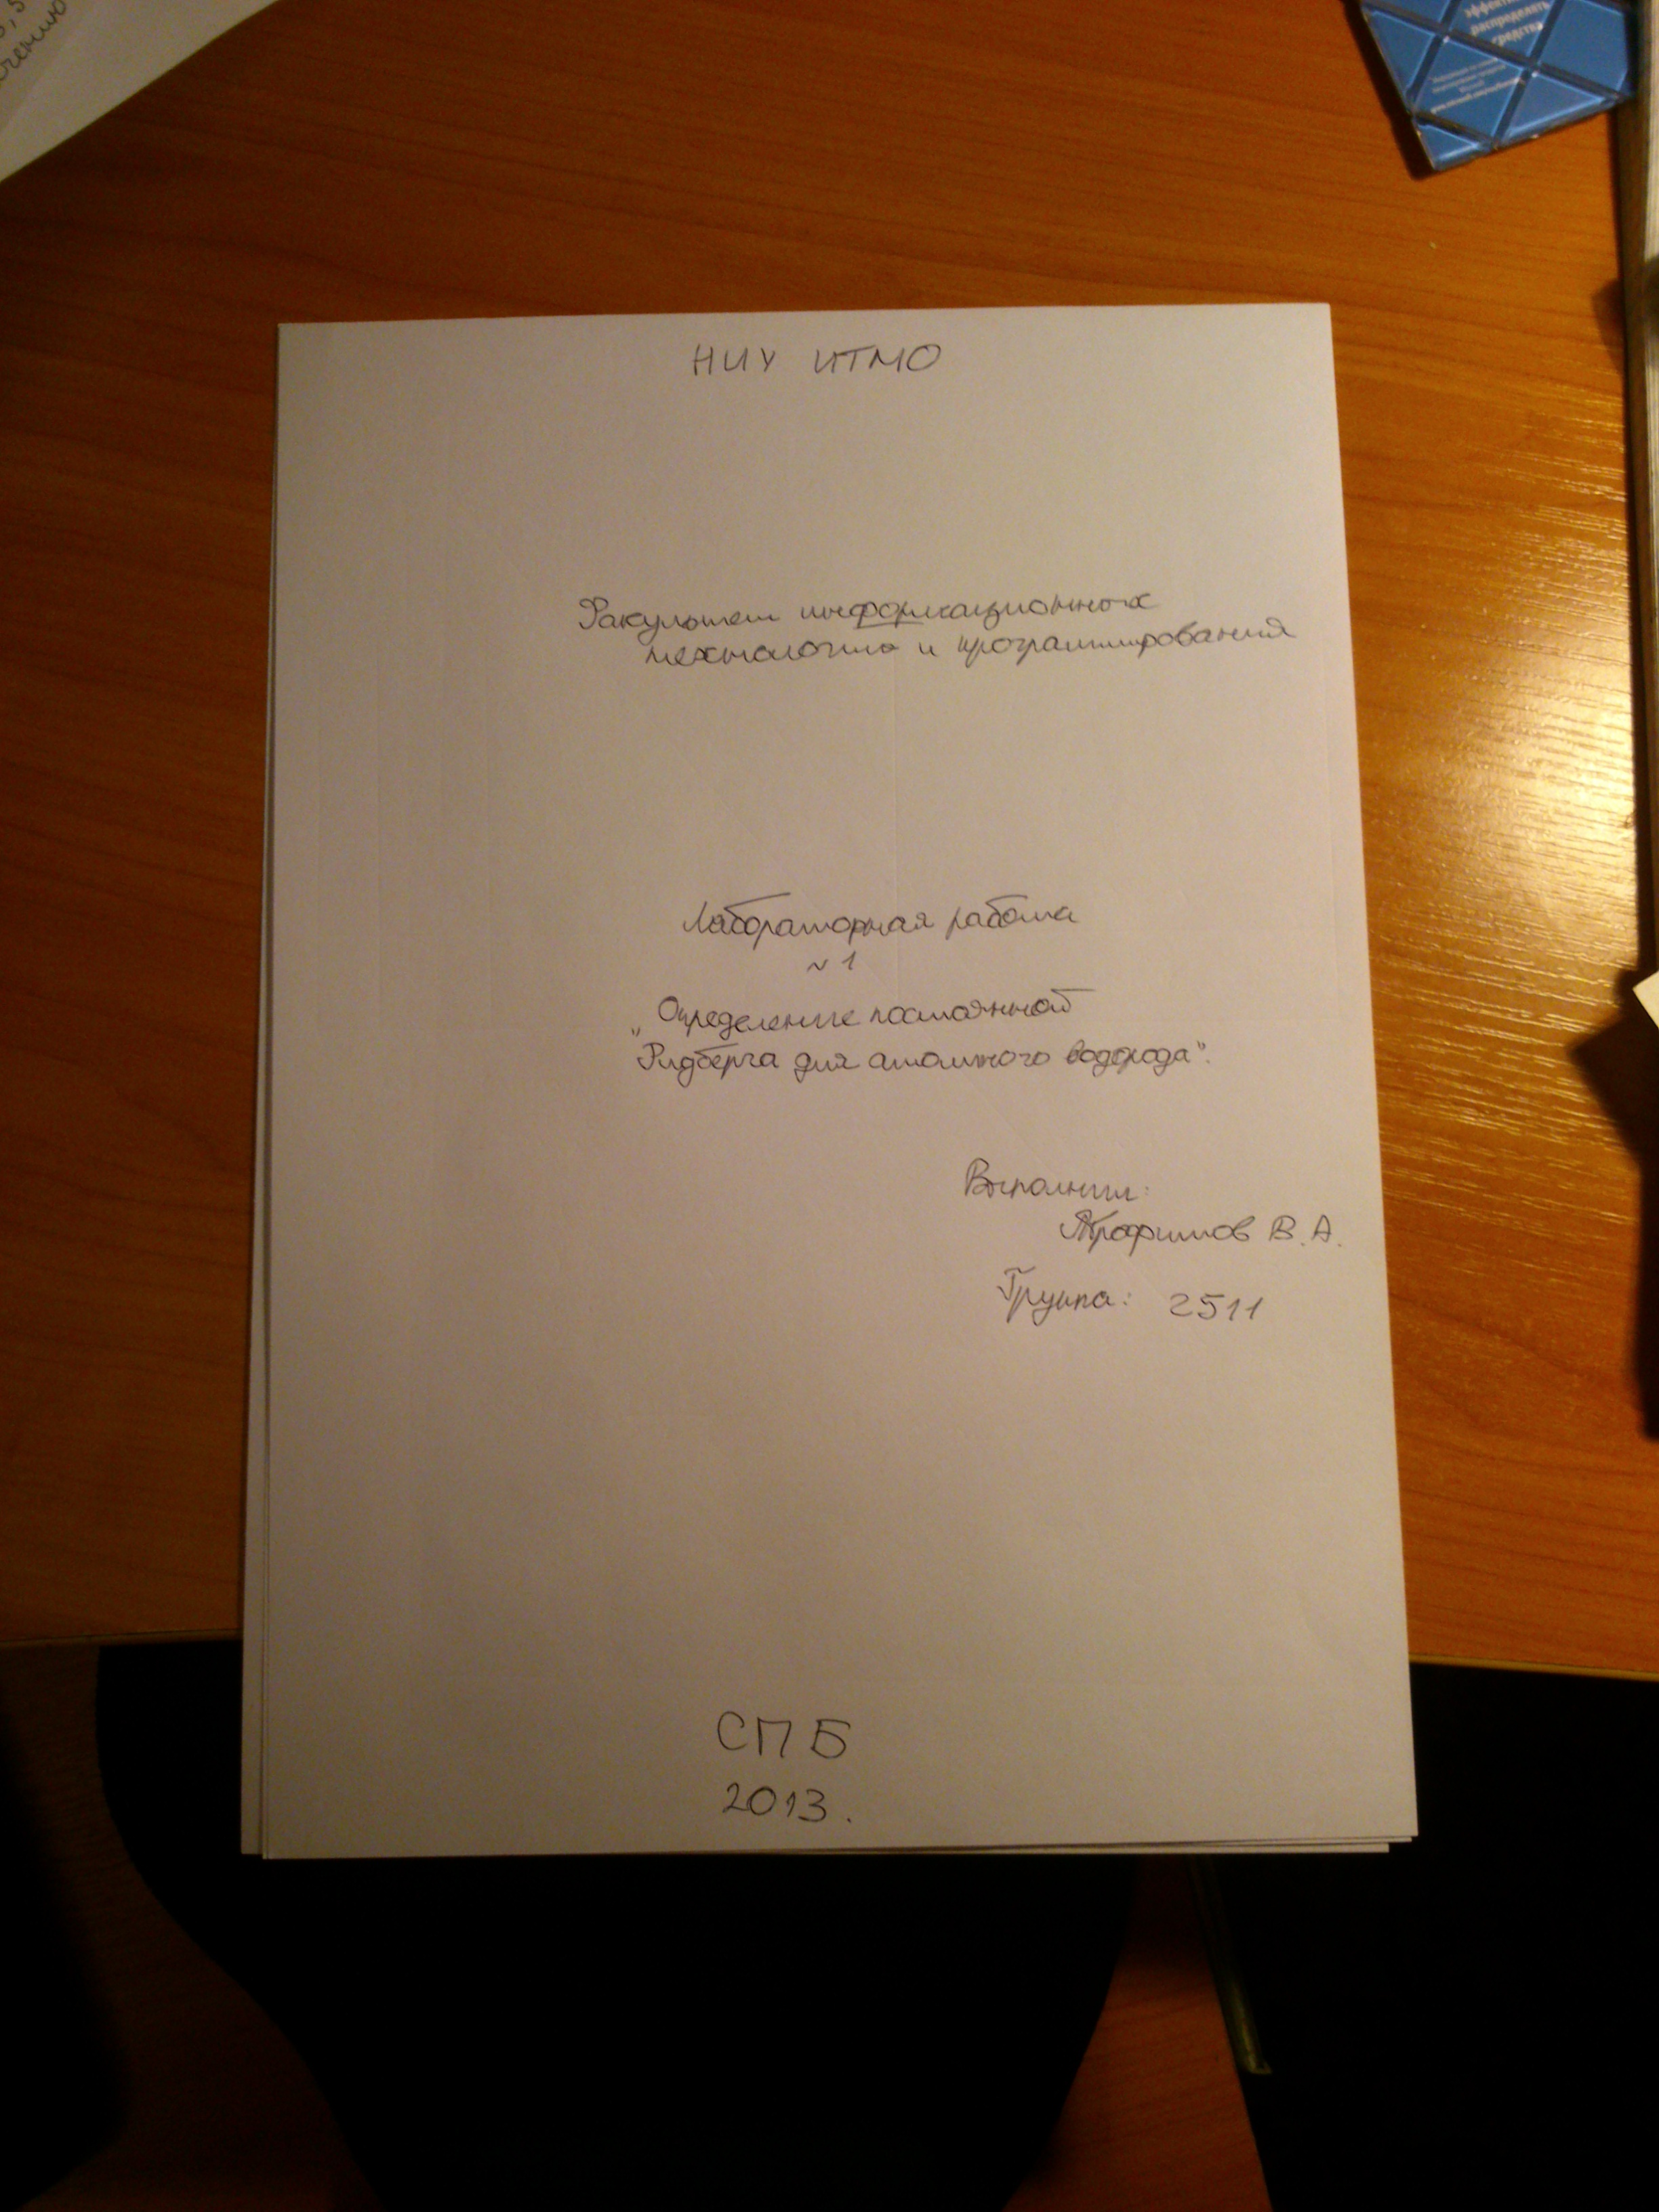 эффекти
распределять
средства
НИУ ИТМО
Факультет информационных
технологий и программирования
Лабораторная работа
№ 1
„Определение постоянной
Ридберга для атомного водорода".
Выполнил:
Трофимов В. А.
Группа: 2511
СПБ
2013.